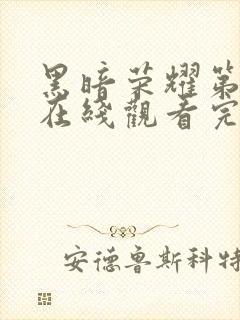 黑暗荣耀第
在綫觀看完
安德鲁斯科特